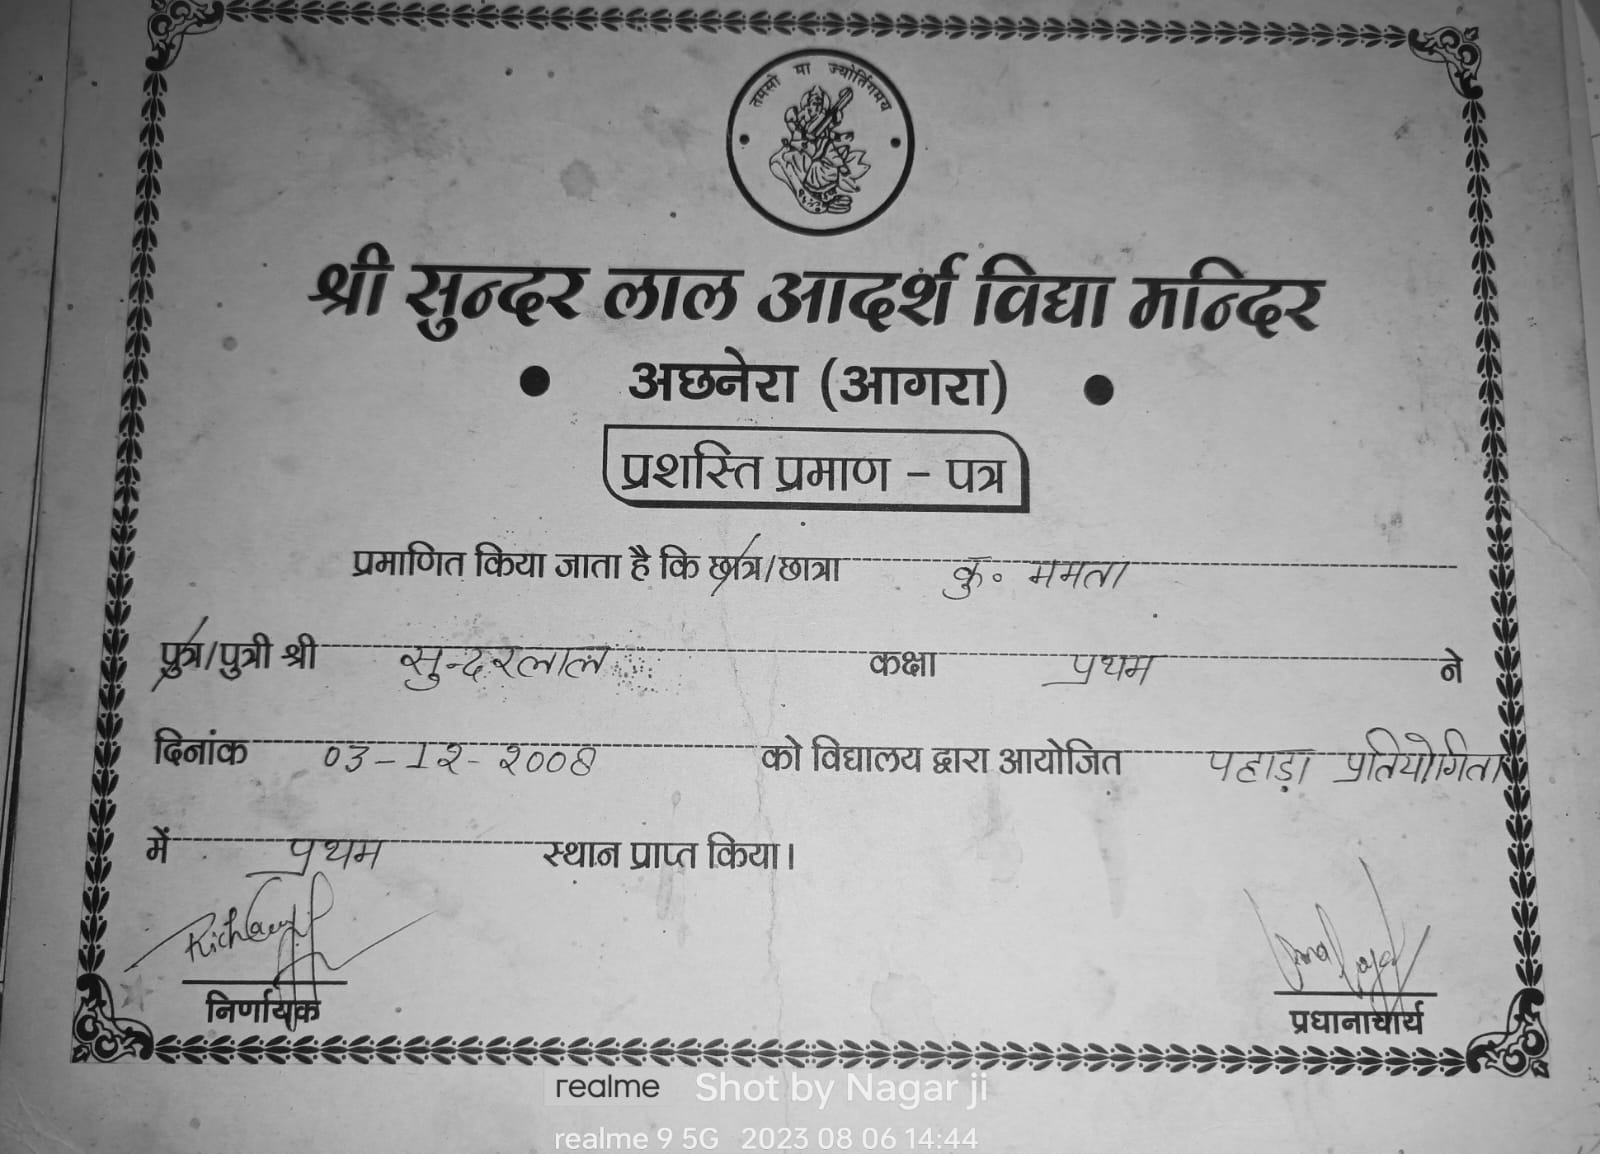 तमसो मा ज्योर्तिगमय
श्री सुन्दर लाल आदर्श विद्या मन्दिर
• अछनेरा (आगरा) •
प्रशस्ति प्रमाण - पत्र
प्रमाणित किया जाता है कि छात्र/छात्रा कु. ममता
पुत्र/पुत्री श्री सुन्दरलाल कक्षा प्रथम ने
दिनांक 03-12-2008 को विद्यालय द्वारा आयोजित पहाड़ा प्रतियोगिता
में प्रथम स्थान प्राप्त किया।
निर्णायक प्रधानाचार्य
realme Shot by Nagar ji
realme 9 5G 2023 08 06 14:44